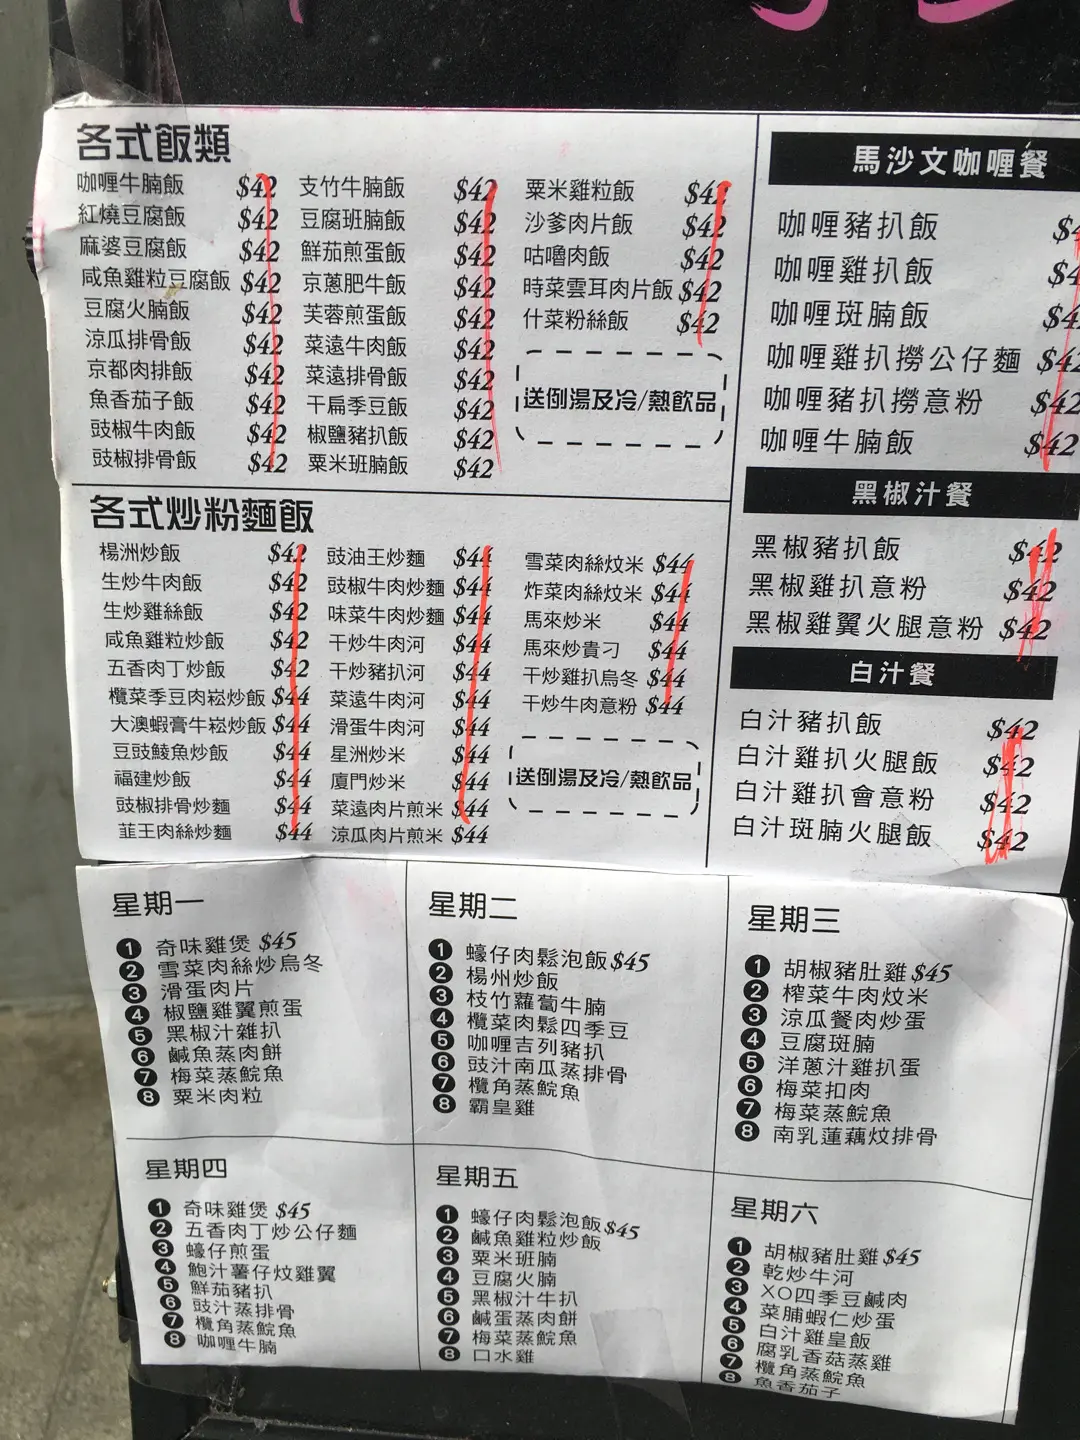 各式飯類
咖喱牛腩飯 $42
紅燒豆腐飯 $42
麻婆豆腐飯 $42
咸魚雞粒豆腐飯 $42
豆腐火腩飯 $42
涼瓜排骨飯 $42
京都肉排飯 $42
魚香茄子飯 $42
豉椒牛肉飯 $42
豉椒排骨飯 $42
支竹牛腩飯 $42
豆腐班腩飯 $42
鮮茄煎蛋飯 $42
京蔥肥牛飯 $42
芙蓉煎蛋飯 $42
菜遠牛肉飯 $42
菜遠排骨飯 $42
干扁季豆飯 $42
椒鹽豬扒飯 $42
粟米班腩飯 $42
粟米雞粒飯 $42
沙爹肉片飯 $42
咕嚕肉飯 $42
時菜雲耳肉片飯 $42
什菜粉絲飯 $42
送例湯及冷/熱飲品
各式炒粉麵飯
楊洲炒飯 $42
生炒牛肉飯 $42
生炒雞絲飯 $42
咸魚雞粒炒飯 $42
五香肉丁炒飯 $42
欖菜季豆肉崧炒飯 $44
大澳蝦膏牛崧炒飯 $44
豆豉鯪魚炒飯 $44
福建炒飯 $44
豉椒排骨炒麵 $44
韮王肉絲炒麵 $44
豉油王炒麵 $44
豉椒牛肉炒麵 $44
味菜牛肉炒麵 $44
干炒牛肉河 $44
干炒豬扒河 $44
菜遠牛肉河 $44
滑蛋牛肉河 $44
星洲炒米 $44
廈門炒米 $44
菜遠肉片煎米 $44
涼瓜肉片煎米 $44
雪菜肉絲炆米 $44
炸菜肉絲炆米 $44
馬來炒米 $44
馬來炒貴刁 $44
干炒雞扒烏冬 $44
干炒牛肉意粉 $44
送例湯及冷/熱飲品
馬沙文咖喱餐
咖喱豬扒飯
咖喱雞扒飯
咖喱斑腩飯
咖喱雞扒撈公仔麵 $42
咖喱豬扒撈意粉 $42
咖喱牛腩飯 $42
黑椒汁餐
黑椒豬扒飯 $42
黑椒雞扒意粉 $42
黑椒雞翼火腿意粉 $42
白汁餐
白汁豬扒飯 $42
白汁雞扒火腿飯 $42
白汁雞扒會意粉 $42
白汁斑腩火腿飯 $42
星期一
1 奇味雞煲 $45
2 雪菜肉絲炒烏冬
3 滑蛋肉片
4 椒鹽雞翼煎蛋
5 黑椒汁雜扒
6 鹹魚蒸肉餅
7 梅菜蒸鯇魚
8 粟米肉粒
星期二
1 蠔仔肉鬆泡飯 $45
2 楊州炒飯
3 枝竹蘿蔔牛腩
4 欖菜肉鬆四季豆
5 咖喱吉列豬扒
6 豉汁南瓜蒸排骨
7 欖角蒸鯇魚
8 霸皇雞
星期三
1 胡椒豬肚雞 $45
2 榨菜牛肉炆米
3 涼瓜餐肉炒蛋
4 豆腐斑腩
5 洋蔥汁雞扒蛋
6 梅菜扣肉
7 梅菜蒸鯇魚
8 南乳蓮藕炆排骨
星期四
1 奇味雞煲 $45
2 五香肉丁炒公仔麵
3 蠔仔煎蛋
4 鮑汁薯仔炆雞翼
5 鮮茄豬扒
6 豉汁蒸排骨
7 欖角蒸鯇魚
8 咖喱牛腩
星期五
1 蠔仔肉鬆泡飯 $45
2 鹹魚雞粒炒飯
3 粟米班腩
4 豆腐火腩
5 黑椒汁牛扒
6 鹹蛋蒸肉餅
7 梅菜蒸鯇魚
8 口水雞
星期六
1 胡椒豬肚雞 $45
2 乾炒牛河
3 XO四季豆鹹肉
4 菜脯蝦仁炒蛋
5 白汁雞皇飯
6 腐乳香菇蒸雞
7 欖角蒸鯇魚
8 魚香茄子